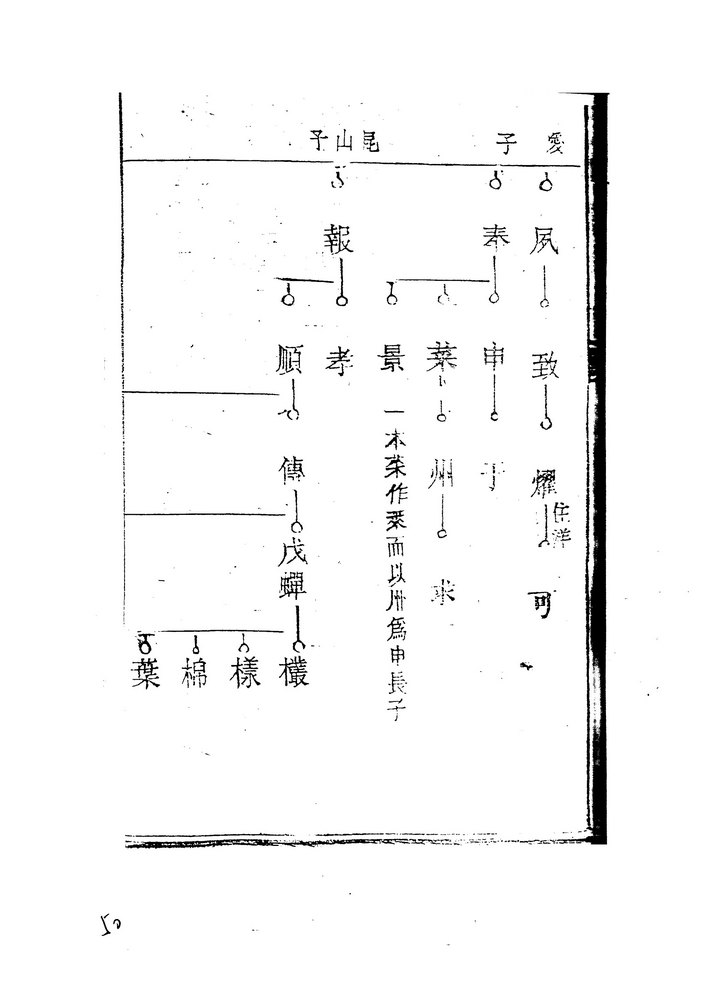 愛
夙
致
燿
住洋
可
子
奉
申
于
菜
州
求
景
一本菜作葉而以州為申長子
昆山子
報
孝
順
傳
戊蟬
欉
樣
棉
葉
50